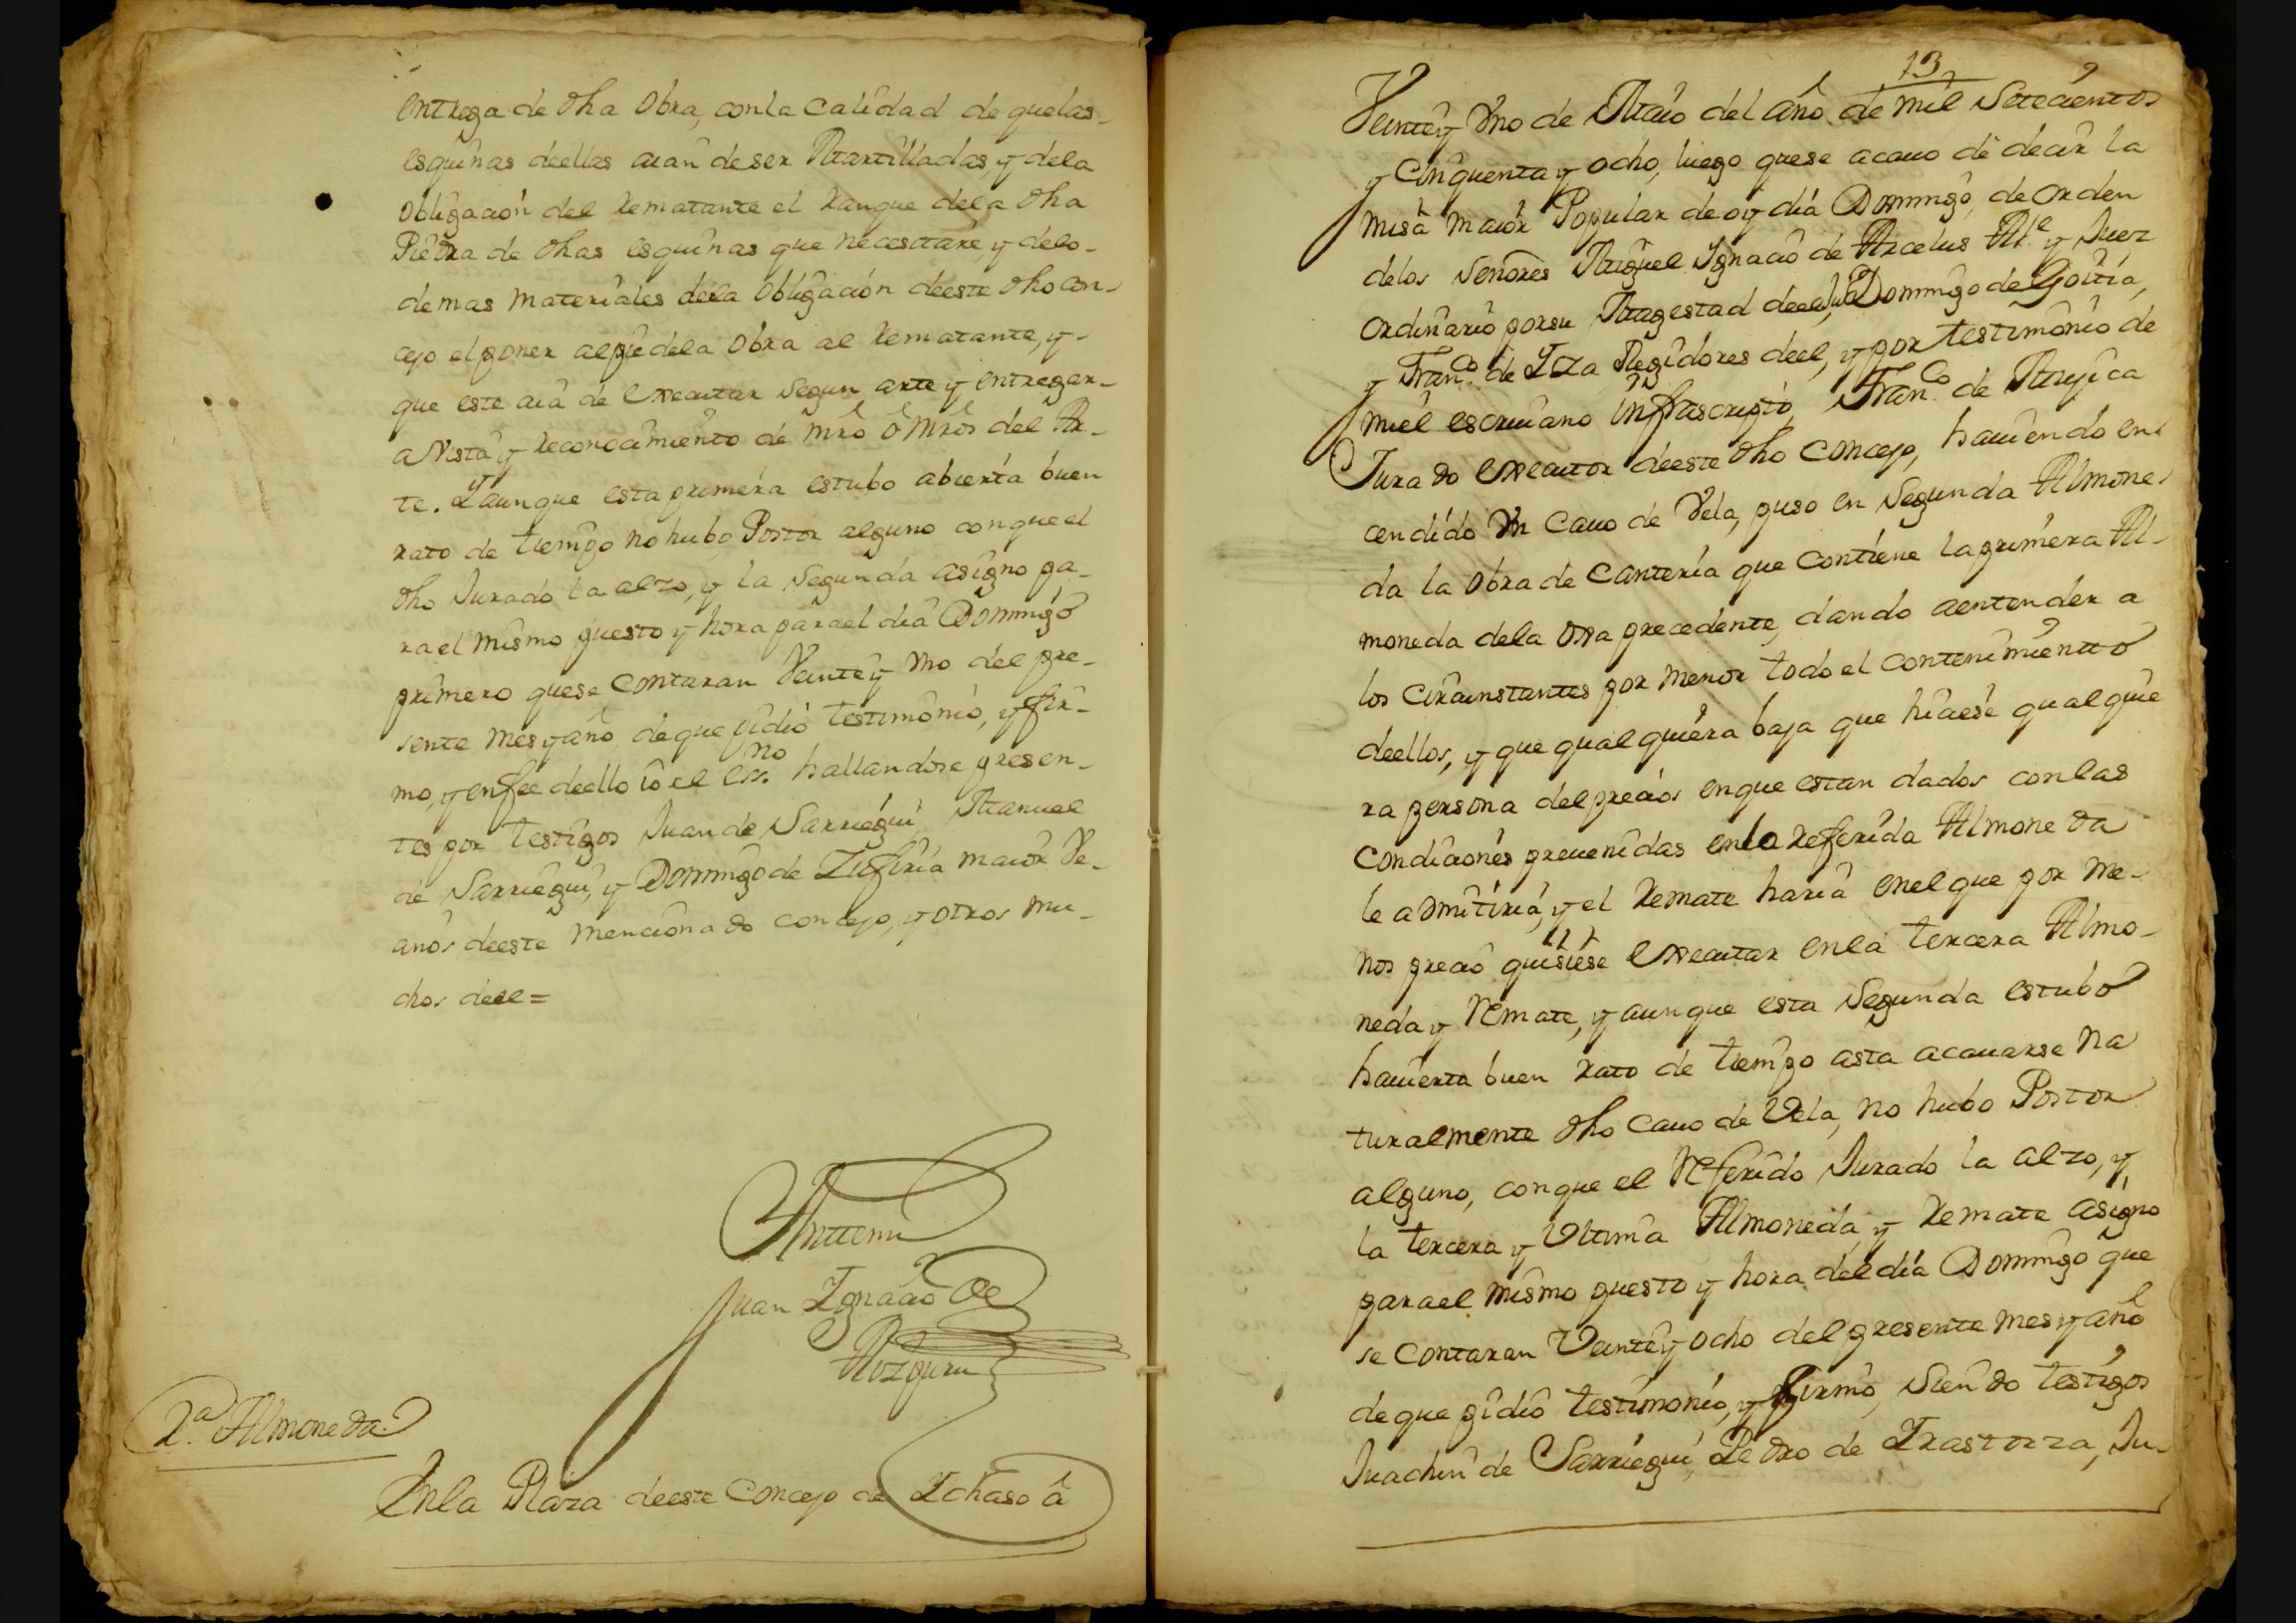 entrega de dha Obra, conla Calidad de quelas
esquinas deellas aian deser Martilladas, y dela
obligación del Rematante el Ranque dela dha
Piedra de dhas esquinas que necesitare, y delo
demas materiales dela obligación deeste dho con-
cejo el poner alpie dela obra al Rematante, y
que este aia de executar segun arte y entregar
a Vista y Reconocimiento de Mro ô Mros del Ar-
te. Y aunque esta primera estubo abierta buen
rato de tiempo no hubo Postor alguno conque el
dho Jurado la alzo, y la segunda asigno pa-
ra el mismo puesto y hora para el dia Domingo
primero quese contaran Veintey Vno del pre-
sente mes y año, de que pidió testimonio, y fir-
mo, y enfee deello io el essno hallandose presen-
tes por testigos Juan de Sarriegui, Manuel
de Sarriegui, y Domingo de Zufiria maior Ve-
anos deeste mencionado concejo, y otros mu-
chos deel =
Anttemi
Juan Ignacio de
Aozpuru
2.a Almoneda
Enla Plaza deeste Concejo de Ichaso â
13
Veintey Vno de Maio del año de mil Setecientos
y cinquenta y ocho, luego quese acauo de decir la
misa maior Popular de oy dia Domingo, de orden
delos Señores Miguel Ignacio de Arcelus Alle y Juez
ordinario porsu Magestad deel, Domingo de Goitia,
y Franco de Iza Regidores deel, y por testimonio de
miel escriuano infrascripto, Franco de Mujica
Jurado executor deeste dho concejo, hauiendo en
cendido Vn Cauo de Vela, puso en segunda Almone
da la obra de Canteria que contiene la primera Al-
moneda dela oxa precedente, dando aentender a
los circunstantes por menor todo el contenimiento
deellos, y que qualquiera baja que hiciese qualquie
ra persona del precios enque estan dados conlas
condiciones preuenidas enla referida Almoneda
le admitiria, y el Remate haria enelque por me-
nos precio quisiese executar enla tercera Almo-
neda y Remate, y aunque esta segunda estubo
hauierta buen rato de tiempo asta acauarse na
turalmente dho cauo de Vela, no hubo Postor
alguno, conque el Referido Jurado la alzo, y
la tercera y Vltima Almoneda, y Remate asigno
parael mismo puesto y hora del dia Domingo que
se contaran Veintey ocho del presente mes y año
deque pidió testimonio, y firmó, siendo testigos
Juachin de Sarriegui, Pedro de Irastorza, Ju-